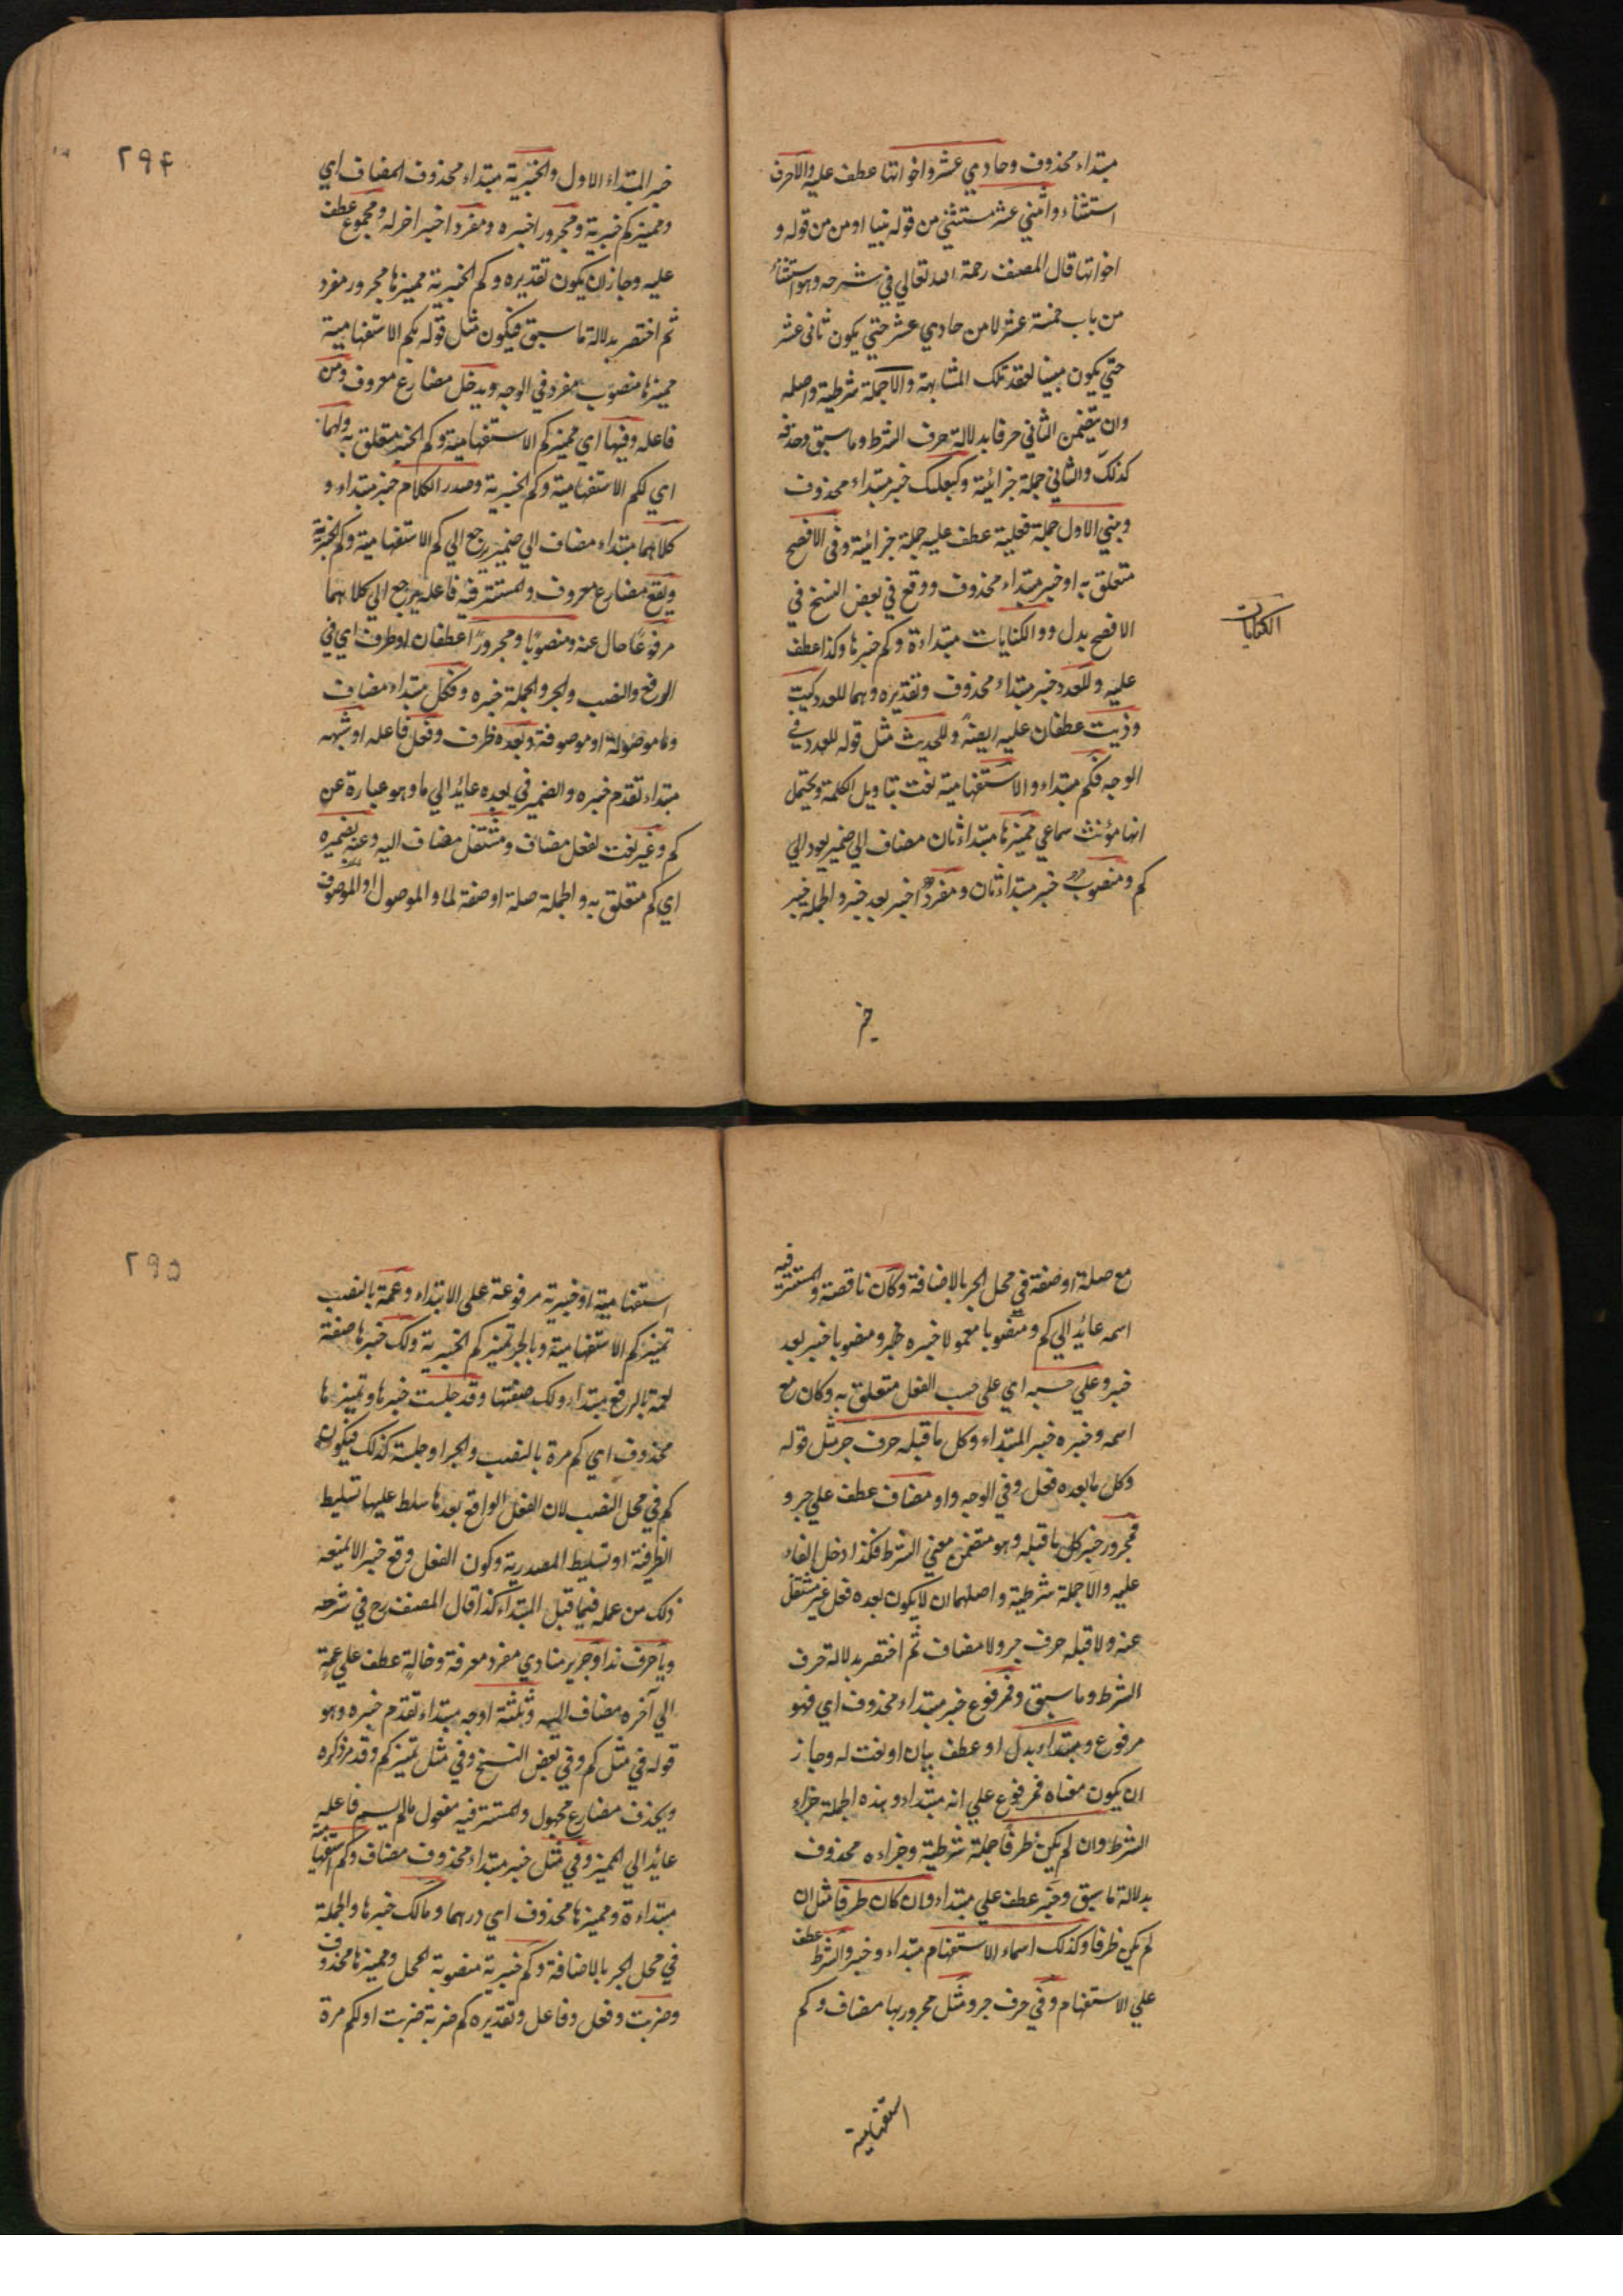 مبتداء محذوف وحادي عشر واخواتها عطف عليه والاحرف
استثناء واثني عشر مستثني من قوله بنيا او من من قوله و
اخواتها قال المصنف رحمة الله تعالي في شرحه وهو استثناء
من باب خمسة عشر لا من حادي عشر حتي يكون ثاني عشر
حتي يكون مبنيا لفقد تلك المشابهة والا جملة شرطية واصله
وان يتضمن الثاني حرفا بدلالة حرف الشرط وما سبق وحذفه
كذلك والثاني جملة جزائية وكبعلبك خبر مبتداء محذوف
وبني الاول جملة فعلية عطف عليه جملة جزائية وفي الافصح
متعلق به او خبر مبتداء محذوف ووقع في بعض النسخ في
الافصح بدل وو الكنايات مبتداءة وكم خبرها وكذا عطف
الكنايات
عليه وللعدد خبر مبتداء محذوف وتقديره وهما للعدد كيت
وذيت عطفان عليه ايضه وللحديث مثل قوله للعدد في
الوجه فكم مبتداء والاستفهامية نعت بتاويل الكلمة ويحتمل
انها مؤنث سماعي مميزها مبتداء ثان مضاف الي ضمير يعود الي
كم ومنصوب خبر مبتداء ثان ومفرد اخبر بعد خبر والجملة خبر
خبر
٢٩٤
خبر المبتداء الاول والخبرية مبتداء محذوف المضاف اي
ومميز كم خبرية ومجرور اخبره ومفرد اخبر اخر له ومجموع عطف
عليه وجاز ان يكون تقديره وكم الخبرية مميزها مجرور مفرد
ثم اختصر بدلالة ما سبق فيكون مثل قوله بكم الاستفهامية
مميزها منصوب مفرد في الوجه ويدخل مضارع معروف ومن
فاعله وفيها اي مميز كم الاستفهامية وكم الخبر متعلق به ولهما
اي لكم الاستفهامية وكم الخبرية وصدر الكلام خبر مبتداء و
كلاهما مبتداء مضاف الي ضمير يرجع الي كم الاستفهامية وكم الخبرية
ويقع مضارع معروف والمستتر فيه فاعله يرجع الي كلاهما
مرفوعا حال عنه ومنصوبا ومجرورا عطفان او ظرف اي في
الرفع والنصب والجر والجملة خبره وفكل مبتداء مضاف
وما موصولة او موصوفة وبعده ظرف وفعل فاعله او شبهه
مبتداء تقدم خبره والضمير في بعده عائد الي ما وهو عبارة عن
كم وغير نعت لفعل مضاف ومشتغل مضاف اليه وعنه بضميره
اي كم متعلق به والجملة صلة او صفة لما والموصول او الموصوف
مع صلة او صفة في محل الجر بالاضافة وكان ناقصة والمستتر فيه
اسمه عائد الي كم ومنصوبا معمولا خبره خبر ومنصوبا خبر بعد
خبر وعلي حسبه اي علي حسب الفعل متعلق به وكان مع
اسمه وخبره خبر المبتداء وكل ما قبله حرف جر مثل قوله
وكل ما بعده فعل وفي الوجه واو مضاف عطف علي جر و
فمجرور خبر كل ما قبله وهو متضمن معني الشرط فكذا دخل الفاء
عليه والا جملة شرطية واصلهما ان لا يكون بعده فعل غير مشتغل
عنه ولا قبله حرف جر ولا مضاف ثم اختصر بدلالة حرف
الشرط وما سبق وفمرفوع خبر مبتداء محذوف اي فهو
مرفوع ومبتداء بدل او عطف بيان او نعت له وجاز
ان يكون معناه فمرفوع علي انه مبتداء وهذه الجملة جزاء
الشرط وان لم يكن ظرفا جملة شرطية وجزاءه محذوف
بدلالة ما سبق وخبر عطف علي مبتداء وان كان ظرفا مثل ان
لم يكن ظرفا وكذلك اسماء الاستفهام مبتداء وخبر والشرط عطف
علي الاستفهام وفي حرف جر ومثل مجرور بها مضاف وكم
استفهامية
٢٩٥
استفهامية او خبرية مرفوعة علي الابتداء وعمة بالنصب
تمييز كم الاستفهامية وبالجر تمييز كم الخبرية ولك خبرها صفة
لعمة بالرفع مبتداء ولك صفتها وقد حلبت خبرها وتمييزها
محذوف اي كم مرة بالنصب والجر او جملة كذلك فيكون
كم في محل النصب لان الفعل الواقع بعدها سلط عليها تسليط
الظرفية او تسليط المصدرية وكون الفعل وقع خبر الا يمنعه
ذلك من عمله فيما قبل المبتداء كذا قال المصنف رح في شرحه
ويا حرف ندا وجرير منادي مفرد معرفة وخالة عطف علي عمة
الي آخره مضاف اليه وثلثة اوجه مبتداء تقدم خبره وهو
قوله في مثل كم وفي بعض النسخ وفي مثل تمييز كم وقد مر ذكره
ويحذف مضارع مجهول والمستتر فيه مفعول ما لم يسم فاعله
عائد الي المميز وفي مثل خبر مبتداء محذوف مضاف وكم استفهامية
مبتداءة ومميزها محذوف اي درهما ومالك خبرها والجملة
في محل الجر بالاضافة وكم خبرية منصوبة المحل ومميزها محذوف
وضربت وفعل وفاعل وتقديره كم ضربة ضربت او لكم مرة